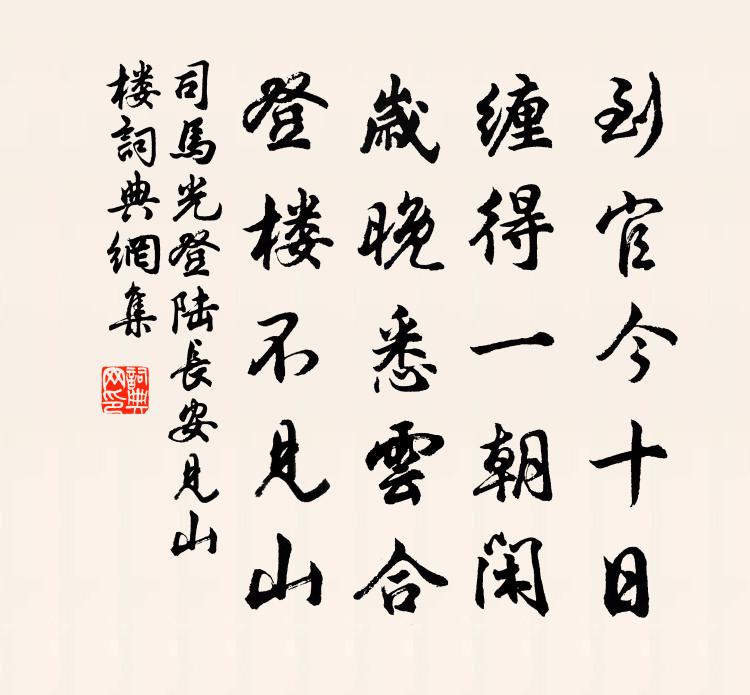 到官今十日
纏得一朝閑
歲晚悉雲合
登楼不見山
司馬光登陸長安見山
楼詞典網集
詞典网印